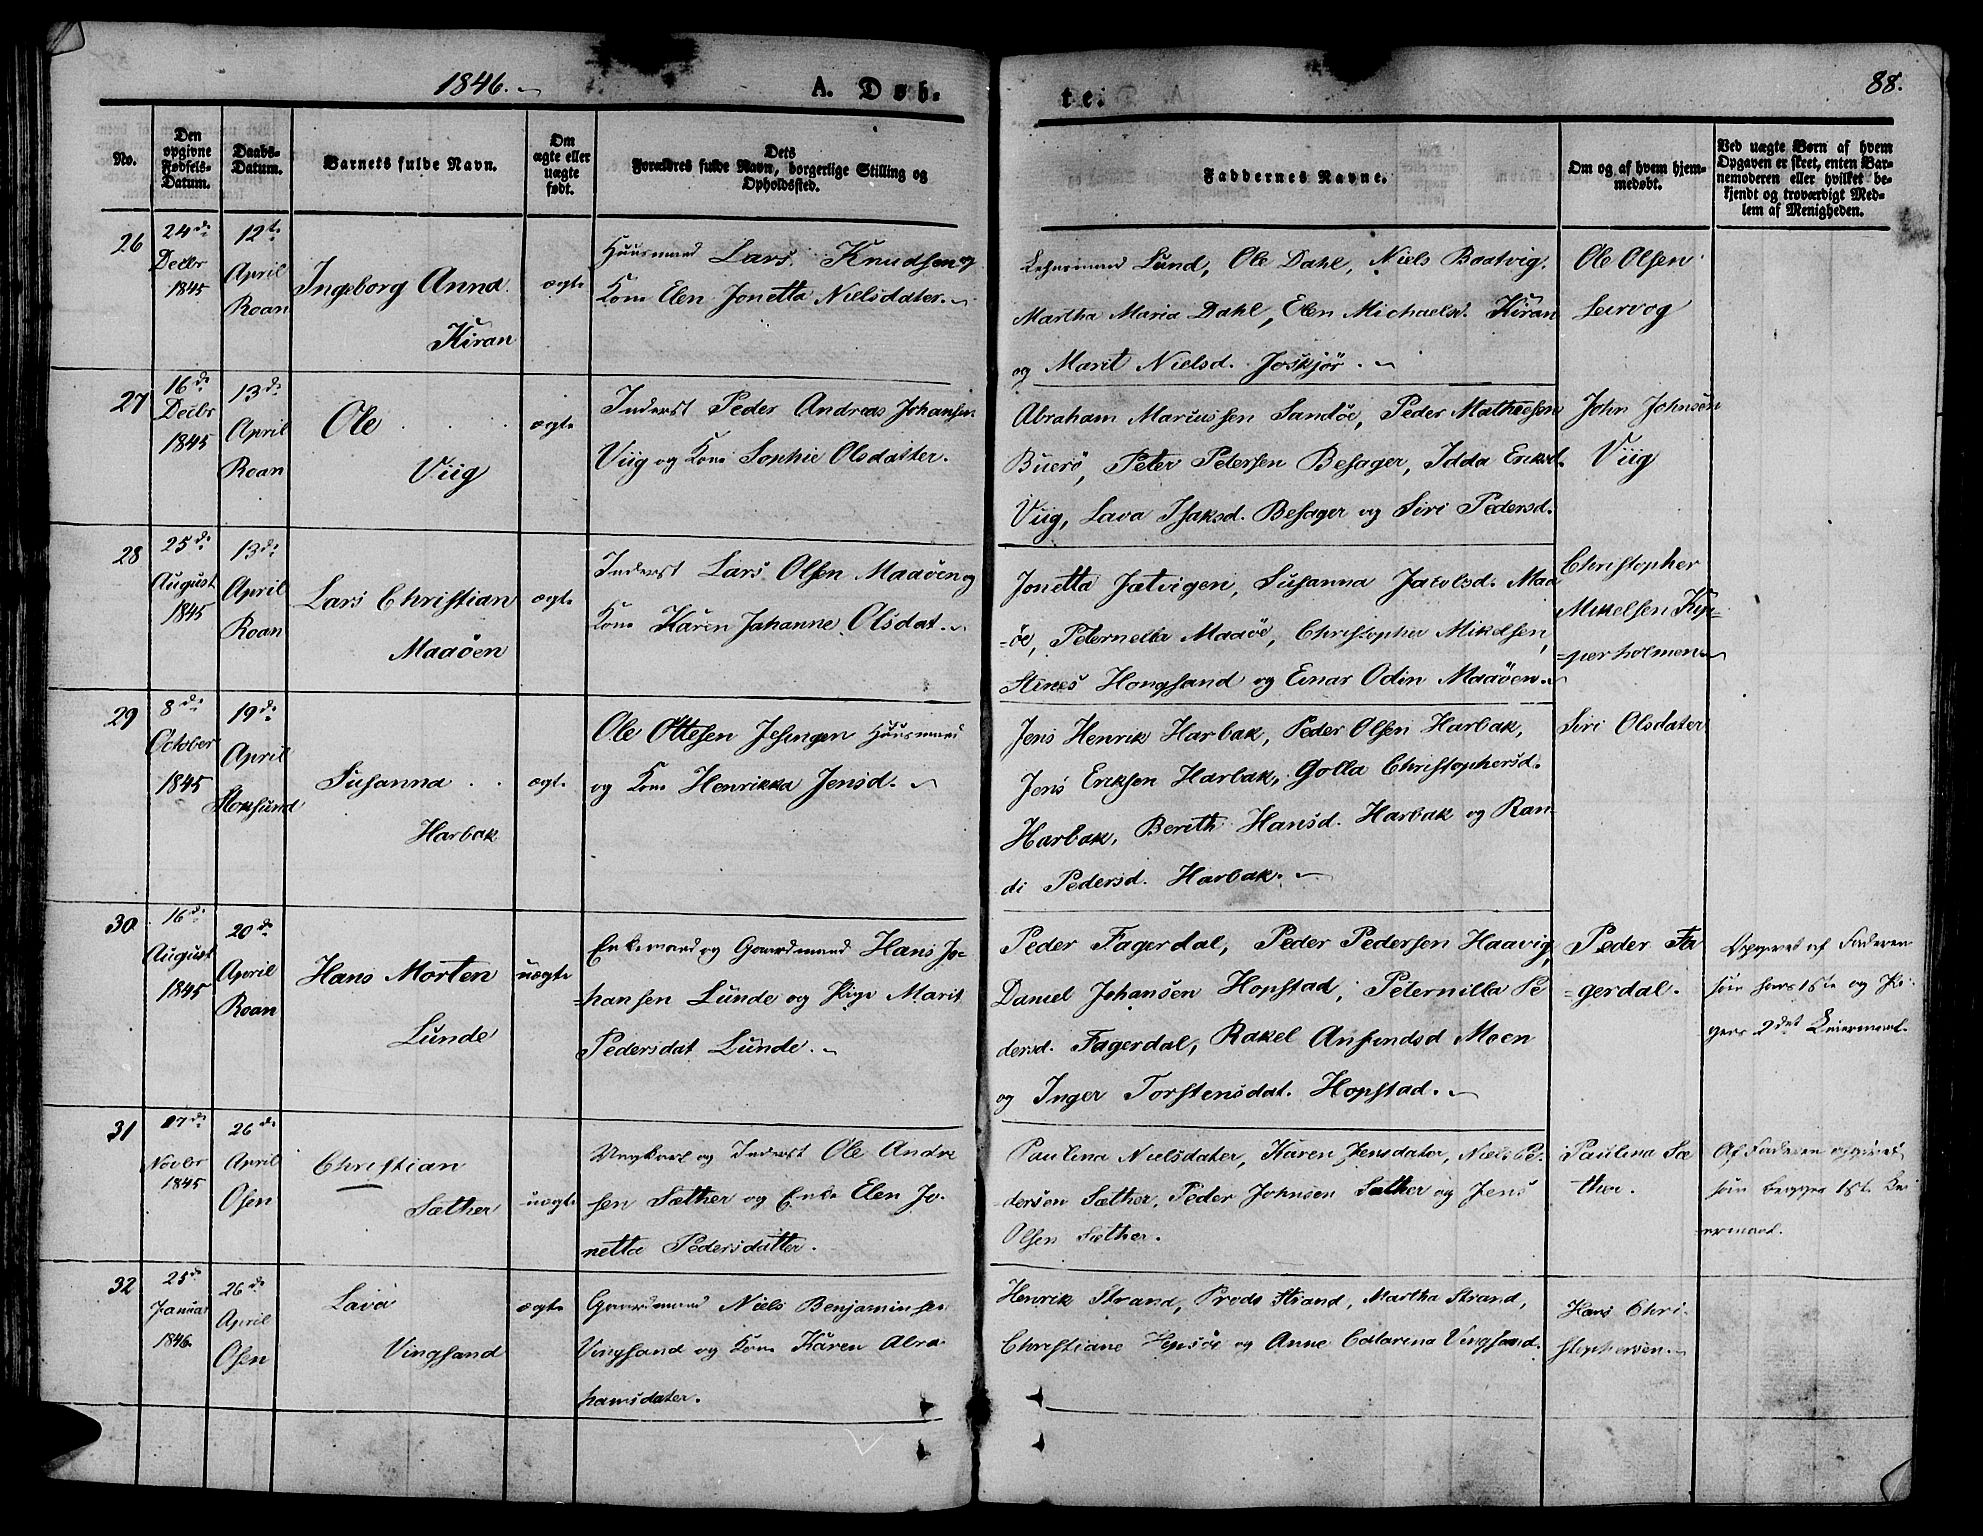 1846. A. Døb-
te. 88.
No.
Den opgivne Fødsels-Datum.
Daabs-Datum.
Barnets fulde Navn.
Om ægte eller uægte født.
Dets Forældres fulde Navn, borgerlige Stilling og Opholdssted.
Faddernes Navne.
Om og af hvem hjem-medøbt.
Ved uægte Børn af hvem Opgaven er skeet, enten Bar-nemoderen eller hvilket be-kjendt og troværdigt Med-lem af Menigheden.
26
24de
Decbr
1845
12te
April
Roan
Ingeborg Anna
Kiran
ægte
Huusmand Lars Knudsen og
Kone Elen Jonetta Nielsdater.
Lehnsmand Lund, Ole Dahl, Niels Baatvig,
Martha Maria Dahl, Elen Michaelsd. Kiran
og Marit Nielsd. Joskjør.
Ole Olsen
Leirvog
27
16de
Decbr
1845
13de
April
Roan
Ole
Viig
ægte
Inderst Peder Andreas Johansen
Viig og Kone Sophie Olsdatter.
Abraham Mariussen Sandöe, Peder Matheesen
Buerö, Peter Petersen Besager, Idda Eriksd.
Viig, Lava Isaksd. Besager og Siri Pedersd.
John Johnsen
Viig
28
25de
August
1845
13de
April
Roan
Lars Christian
Maaöen
ægte
Inderst Lars Olsen Maaöen og
Kone Karen Johanne Olsdat.
Jonetta Jætvigen, Susanna Jacolsd. Maa
=öe, Peternella Maaöe, Christopher Mikelsen,
Stines Hongsand og Einar Odin Maaöen.
Christopher
Mikelsen Kip-
=perholmen
29
8de
October
1845
19de
April
Stoksund
Susanna
Harbak
ægte
Ole Ottesen Jesingen Huusmand
og Kone Henrikka Jensd.
Jens Henrik Harbak, Peder Olsen Harbak,
Jens Eriksen Harbak, Golla Christophersd.
Harbak, Bereth Hansd. Harbak og Ran-
di Pedersd. Harbak.
Siri Olsdater
30
16de
August
1845
20de
April
Roan
Hans Morten
Lunde
uægte
Enkemand og Gaardmand Hans Jo-
hansen Lunde og Pige Marit
Pedersdat Lunde.
Peder Fagerdal, Peder Pedersen Haavig,
Daniel Johansen Hopstad, Peternilla Pe
dersd. Fagerdal, Rakel Anfindsd Moen
og Inger Torstensdat. Hopstad.
Peder Fa
=gerdal.
Opgivet af Faderen
som hans 1ste og Pi-
gens 2det Leiermaal.
31
17de
Novbr
1845
26de
April
Osen
Christian
Sæther
uægte
Ungkarl og Inderst Ole Andre
sen Sæther og Enke Elen Jo-
netta Pedersdatter.
Paulina Nielsdater, Karen Jensdater, Niels Pe-
dersen Sæther, Peder Johnsen Sæther og Jens
Olsen Sæther.
Paulina Sæ
ther.
Af Faderen opgivet
som begges 1ste Lei-
ermaal.
32
25de
Januar
1846
26de
April
Osen
Lava
Vingsand
ægte
Gaardmand Niels Benjaminsen
Vingsand og Kone Karen Abra
hamsdater.
Henrik Strand, Preds Strand, Martha Strand,
Christiane Hepsöe og Anne Catarina Vingsand.
Hans Chri-
stophersen.